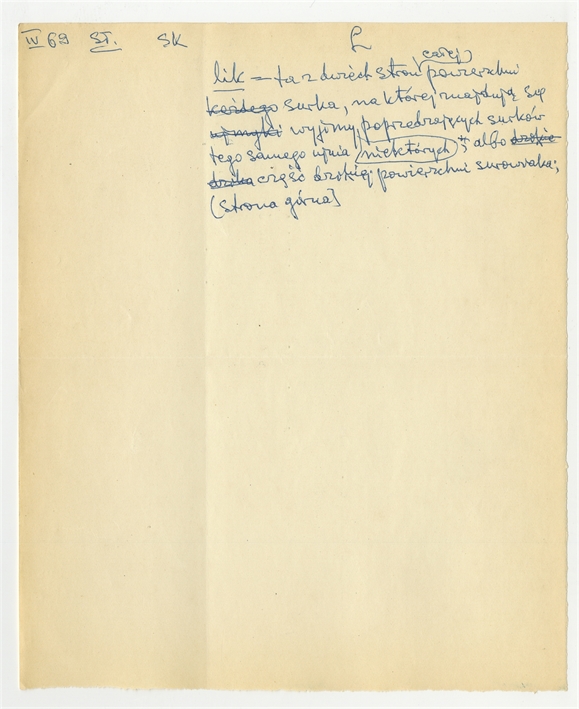 IV 69 ST. SK L
całej
lik = ta z dwóch stron powierzchni
każdego surka, na której znajdują się
wyjmy, poprzedzających surków
tego samego ujnia niektórych albo
część bzokiej powierzchni surowiaka;
(strona górna]